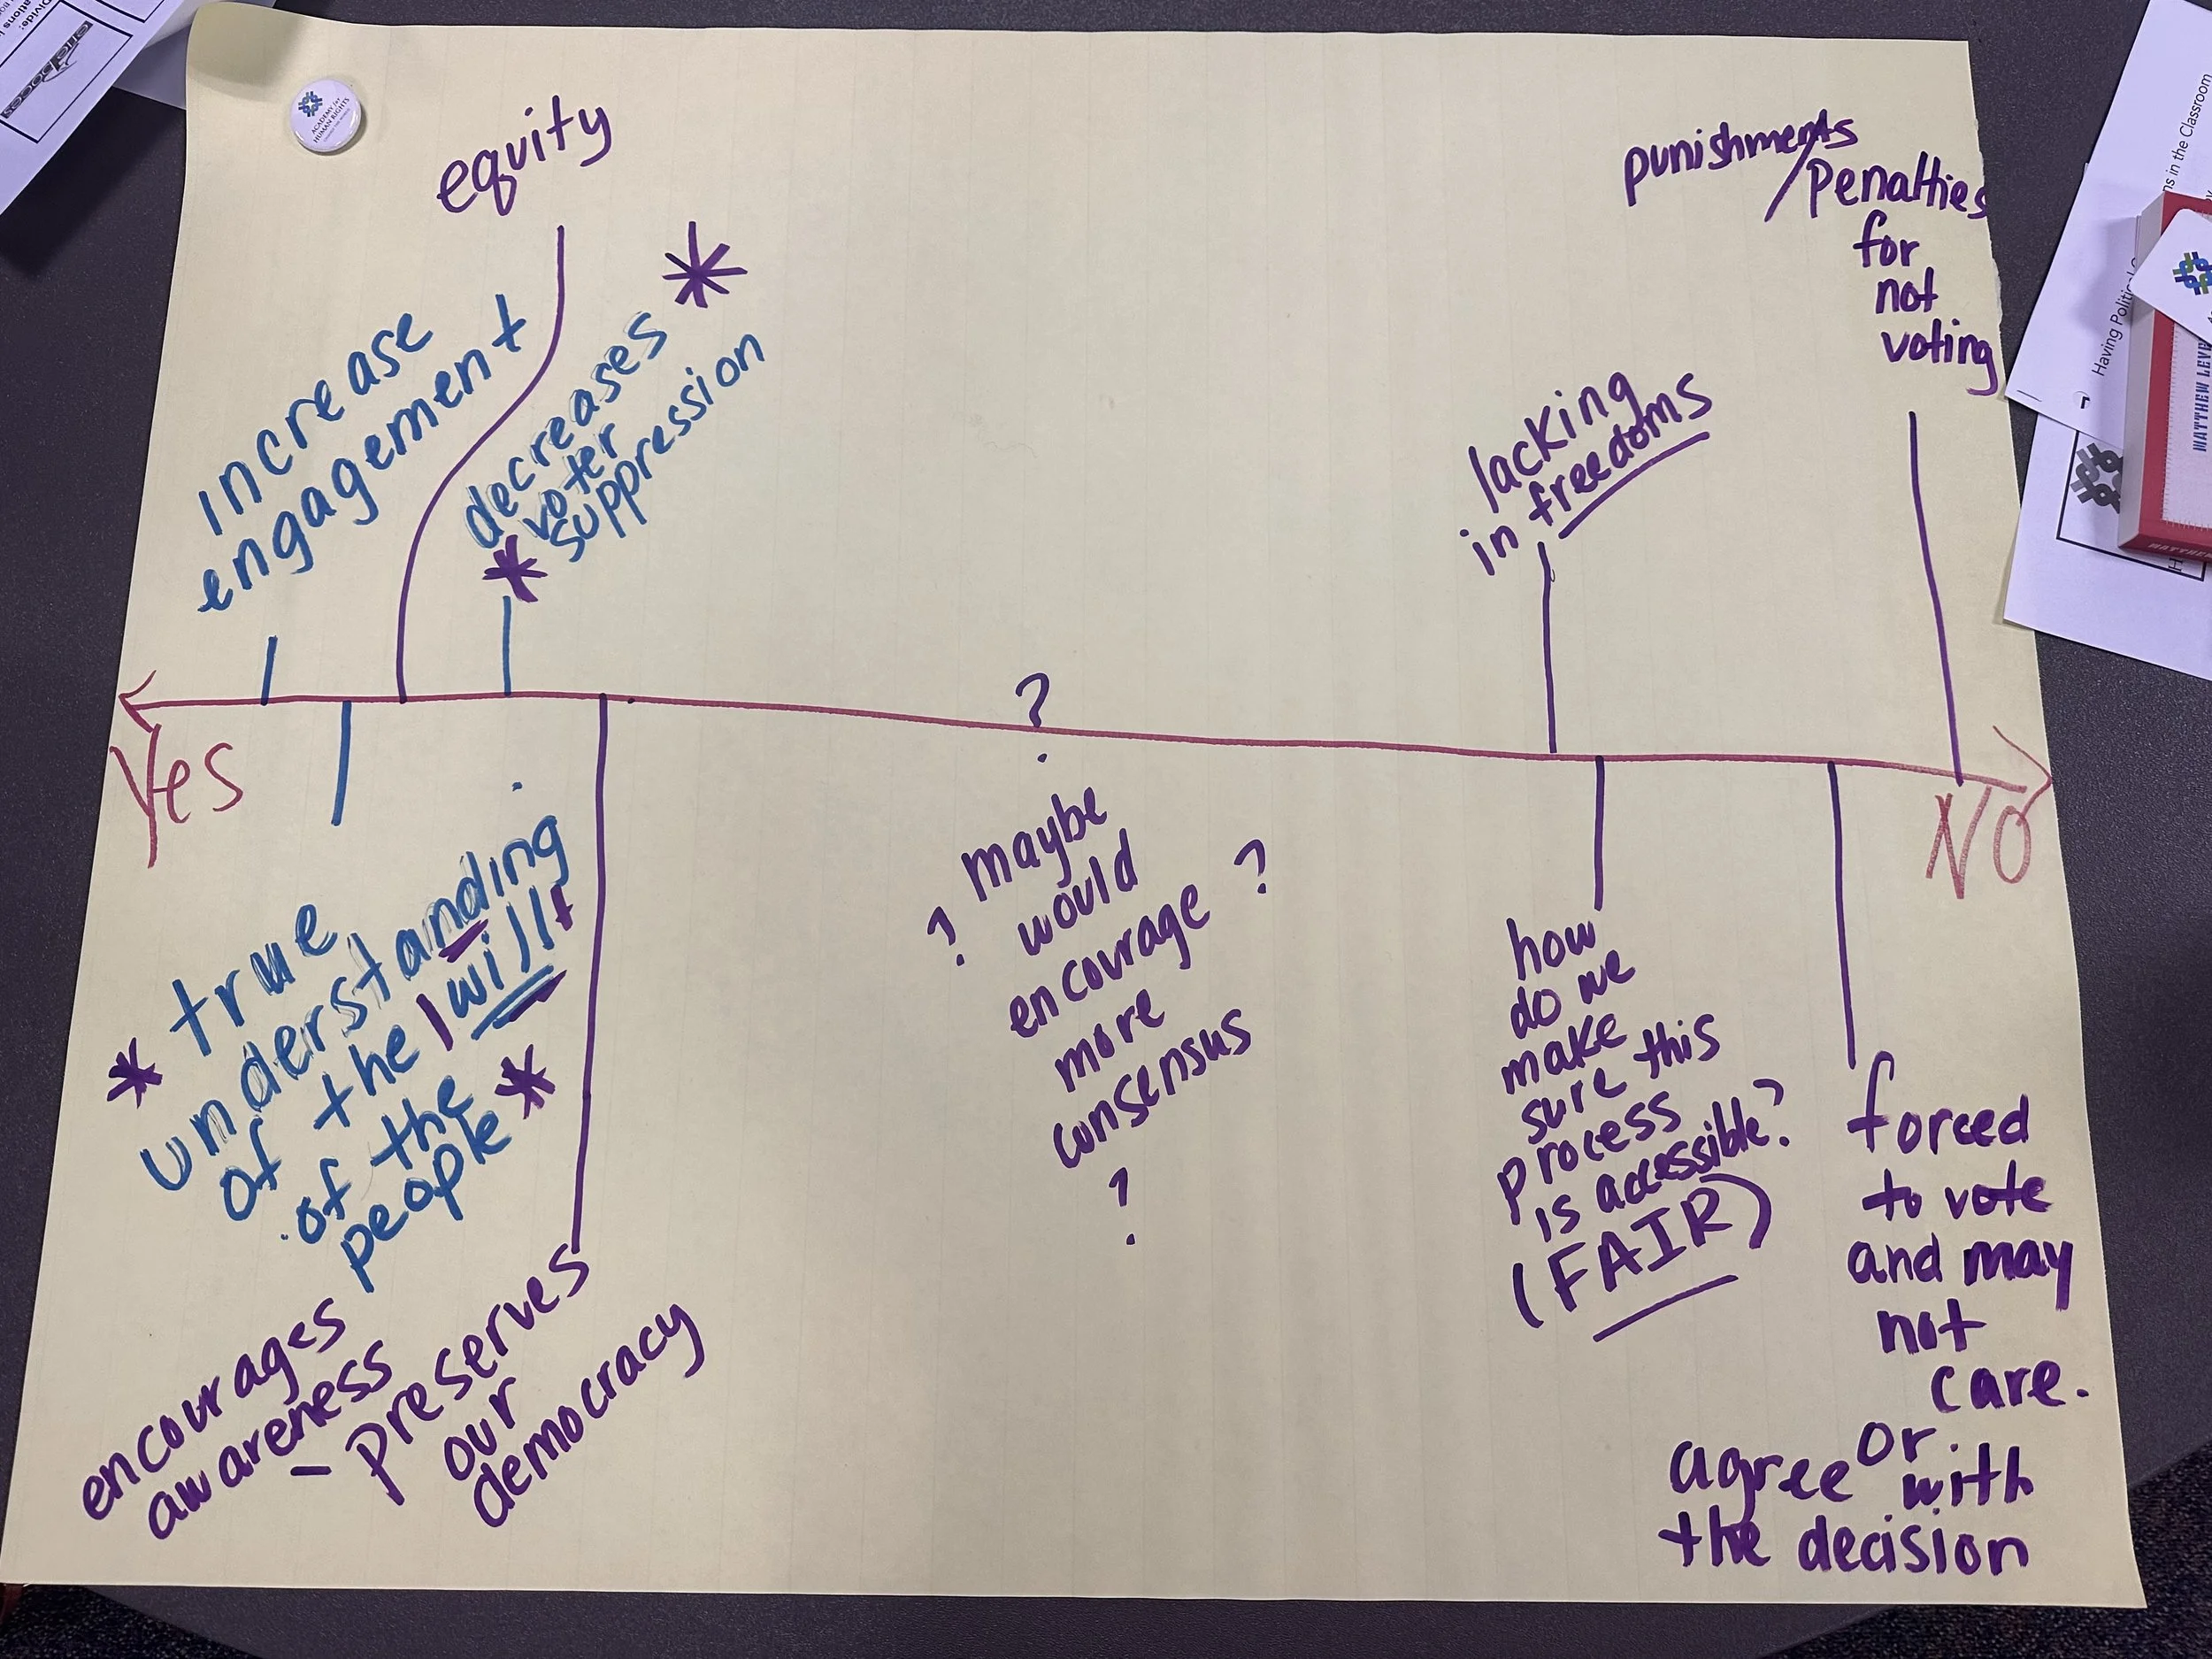 ACADEMY for
HUMAN RIGHTS
equity
increase
engagement
decreases
voter
suppression
punishments
/penalties
for
not
voting
lacking
in freedoms
Yes
?
NO
true
understanding
of the will
of the
people
encourages
awareness
- preserves
our
democracy
maybe
? would ?
encourage
more
consensus
?
how
do we
make
sure this
process
is accessible?
(FAIR)
forced
to vote
and may
not
care.
or
agree with
the decision
Having Political
ns in the Classroom
MATTHEW LEVE
MATTHEW
Divide: